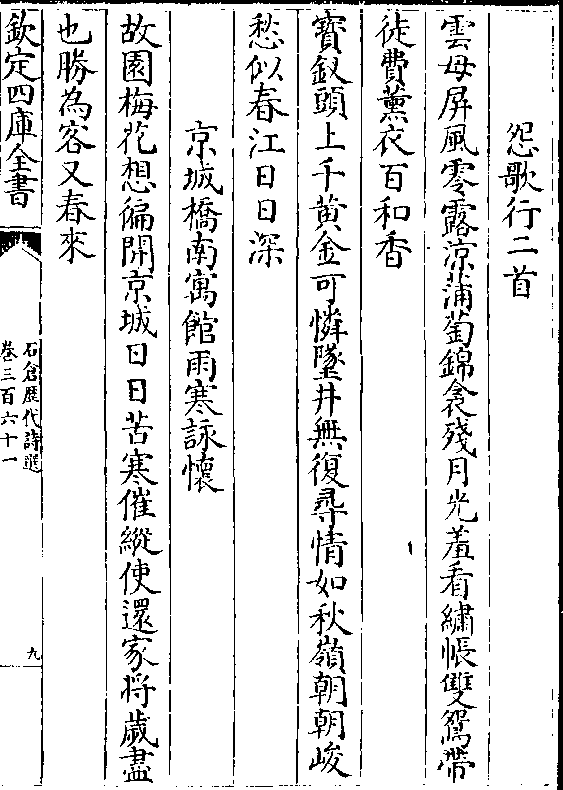 怨歌行二首
雲母屏風零露凉蒲萄錦衾殘月光羞看繡帳雙鴛帶
徒費薰衣百和香
寳釵頭上千黄金可憐墜井無復尋情如秋嶺朝朝峻
愁似春江日日深
京城橋南寓館雨寒詠懷
故園梅花想徧開京城日日苦寒催縱使還家将歲盡
也勝為客又春來
欽定四庫全書
石倉歴代詩選
卷三百六十一
九